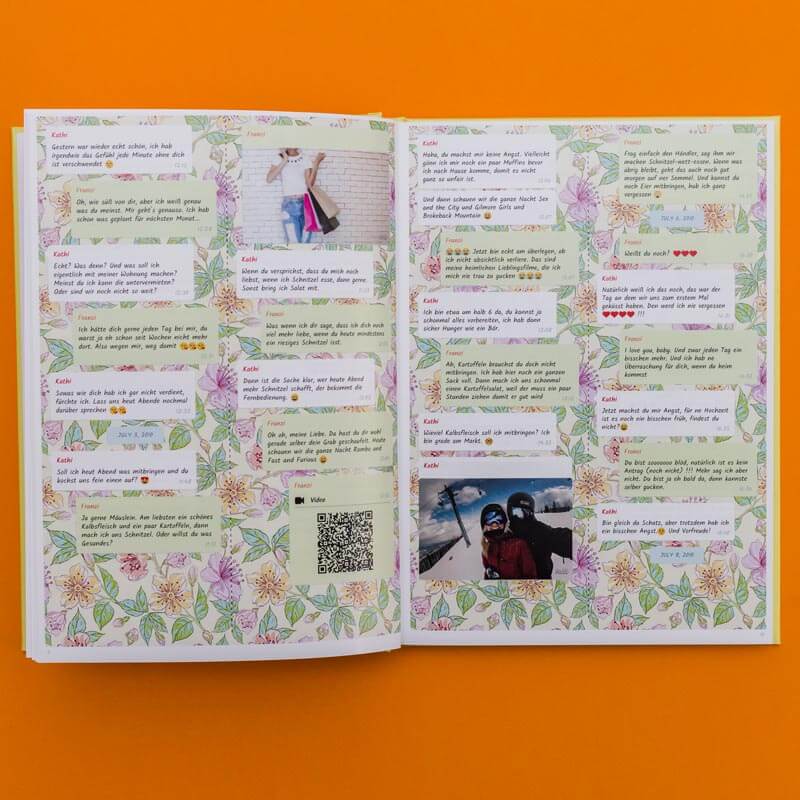 Kathi
Gestern war wieder echt schön, ich hab
irgendwie das Gefühl jede Minute ohne dich
ist verschwendet
Franzi
Oh, wie süß von dir, aber ich weiß genau
was du meinst. Mir geht's genauso. Ich hab
schon was geplant für nächsten Monat...
Kathi
Echt? Was denn? Und was soll ich
eigentlich mit meiner Wohnung machen?
Meinst du ich kann die untervermieten?
Oder sind wir noch nicht so weit?
Franzi
Ich hätte dich gerne jeden Tag bei mir, du
warst ja eh schon seit Wochen nicht mehr
dort. Also wegen mir, weg damit 😘😘😘
Kathi
Sowas wie dich hab ich gar nicht verdient,
fürchte ich. Lass uns heut Abend nochmal
darüber sprechen 😘😘
JULY 5, 2019
Kathi
Soll ich heut Abend was mitbringen und du
kochst uns fein einen auf? 😍
Franzi
Ja gerne Mäuslein. Am liebsten ein schönes
Kalbsfleisch und ein paar Kartoffeln, dann
mach ich uns Schnitzel. Oder willst du was
Gesundes?
Franzi
Kathi
Wenn du versprichst, dass du mich noch
liebst, wenn ich Schnitzel esse, dann gerne.
Sonst bring ich Salat mit.
Franzi
Was wenn ich dir sage, dass ich dich noch
viel mehr liebe, wenn du heute mindestens
ein riesiges Schnitzel isst.
Kathi
Dann ist die Sache klar, wer heute Abend
mehr Schnitzel schafft, der bekommt die
Fernbedienung. 😄
Franzi
Oh oh, meine Liebe. Da hast du dir wohl
gerade selber dein Grab geschaufelt. Heute
schauen wir die ganze Nacht Rambo und
Fast and Furious 😄
Franzi
Video
Kathi
Haha, du machst mir keine Angst. Vielleicht
gönn ich mir noch ein paar Muffins bevor
ich nach Hause komme, damit es nicht
ganz so unfair ist.
Und dann schauen wir die ganze Nacht Sex
and the City und Gilmore Girls und
Brokeback Mountain 😄
Franzi
😭😭😭 Jetzt bin echt am überlegen, ob
ich nicht absichtlich verliere. Das sind
meine heimlichen Lieblingsfilme, die ich
mich nie trau zu gucken 😭😭😭
Kathi
Ich bin etwa um halb 6 da, du kannst ja
schonmal alles vorbereiten, ich hab dann
sicher Hunger wie ein Bär.
Franzi
Ah, Kartoffeln brauchst du doch nicht
mitbringen. Ich hab hier noch ein ganzen
Sack voll. Dann mach ich uns schonmal
einen Kartoffelsalat, weil der muss ein paar
Stunden ziehen damit er gut wird
Kathi
Wieviel Kalbsfleisch soll ich mitbringen? Ich
bin grade am Markt.
Kathi
Franzi
Frag einfach den Händler, sag ihm wir
machen Schnitzel-wett-essen. Wenn was
übrig bleibt, geht das auch noch gut
morgen auf ner Semmel. Und kannst du
noch Eier mitbringen, hab ich ganz
vergessen
JULY 6, 2019
Franzi
Weißt du noch? ❤❤❤
Kathi
Natürlich weiß ich das noch, das war der
Tag an dem wir uns zum erstem Mal
geküsst haben. Den werd ich nie vergessen
❤❤❤❤ !!!
Franzi
I love you, baby. Und zwar jeden Tag ein
bisschen mehr. Und ich hab ne
Überraschung für dich, wenn du heim
kommst
Kathi
Jetzt machst du mir Angst, für ne Hochzeit
ist es noch ein bisschen früh, findest du
nicht?
Franzi
Du bist zooooooo blöd, natürlich ist es kein
Antrag (noch nicht) !!! Mehr sag ich aber
nicht. Du bist ja eh bald da, dann kannste
selber gucken.
Kathi
Bin gleich da Schatz, aber trotzdem hab ich
ein bisschen Angst. Und Vorfreude!
JULY 8, 2019